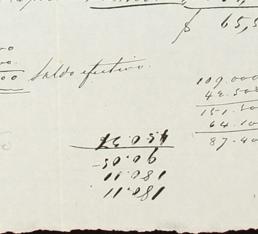 $ 65,5
00
00.
000 Saldo efectivo.
109.000
42.500
151.500
64.100
87.400
180.11
180.11
90.05
450.27